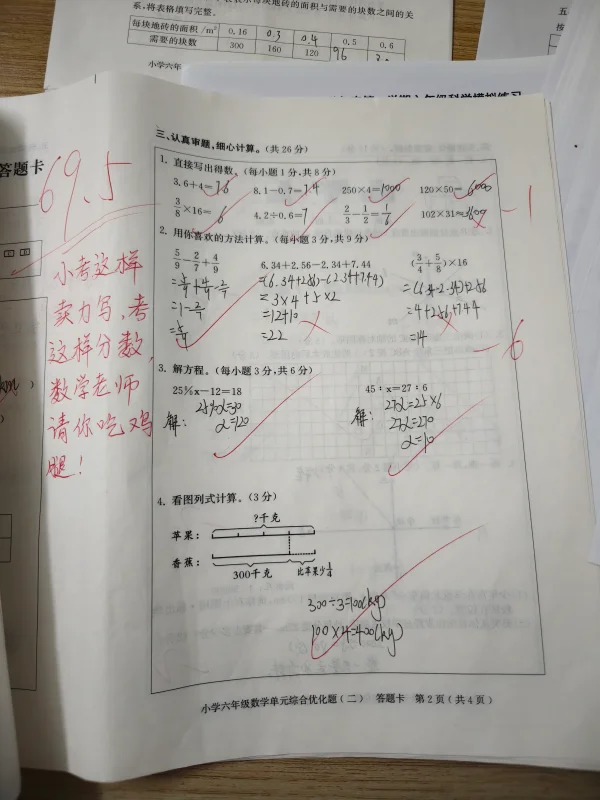 系,将表格填写完整。
每块地砖的面积/m² 0.16 0.3 0.4 0.5 0.6
需要的块数 300 160 120 96
小学六年
答题卡
69.5
小考这样
卖力写,考
这样分数,
数学老师
请你吃鸡
腿!
三、认真审题,细心计算。(共26分)
1. 直接写出得数。(每小题1分,共8分)
3.6+4=7.6 8.1-0.7=7.4 250×4=1000 120×50=6000
3/8×16=6 4.2÷0.6=7 2/3-1/2=1/6 102×31≈3600
-1
2. 用你喜欢的方法计算。(每小题3分,共9分)
5/9-2/7+4/9 6.34+2.56-2.34+7.44 (3/4+5/8)×16
=5/9+4/9-2/7 =(6.34+2.56)-(2.34+7.44) =(6.34-2.34)+2.56
=1-2/7 =3×4+5×2 =4+2.56+7.44
=5/7 =12+10 =14
=22
-6
3. 解方程。(每小题3分,共6分)
25%x-12=18 45:x=27:6
解: 25%x=30 解: 27x=45×6
x=120 27x=270
x=10
4. 看图列式计算。(3分)
?千克
苹果:
香蕉:
300千克 比苹果少1/4
300÷3=100(kg)
100×4=400(kg)
小学六年级数学单元综合优化题(二) 答题卡 第2页(共4页)